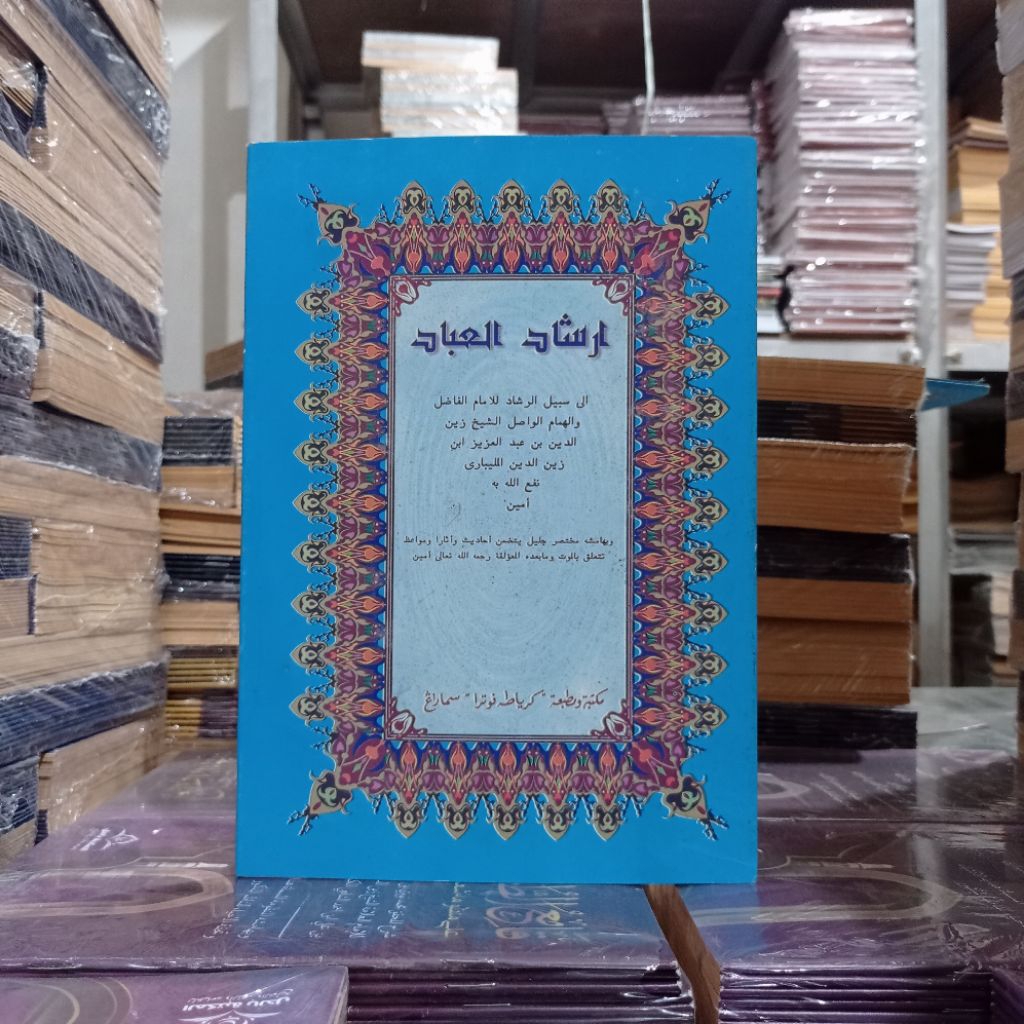 ارشاد العباد
الى سبيل الرشاد للامام الفاضل
والهمام الواصل الشيخ زين
الدين بن عبد العزيز ابن
زين الدين المليبارى
نفع الله به
أمين
وبهامشه مختصر جليل يتضمن أحاديث وآثارا ومواعظ
تتعلق بالموت ومابعده للمؤلف رحمه الله تعالى أمين
مكتبة ومطبعة "كرياطه فوترا" سماراڠ